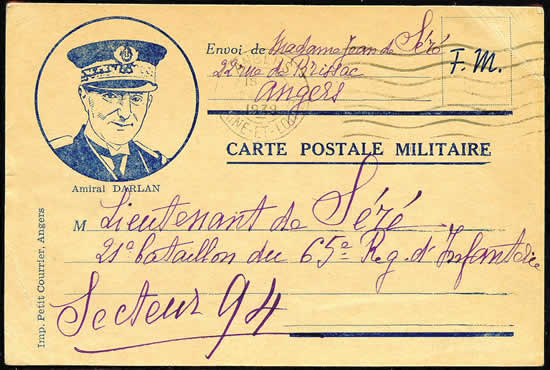 Envoi de Madame Jean de Séré
22 rue de Brissac
Angers
F. M.
1939
CARTE POSTALE MILITAIRE
Amiral DARLAN
M Lieutenant de Séré
21e bataillon du 65e Rg. d'Infanterie
Secteur 94
Imp. Petit Courrier, Angers